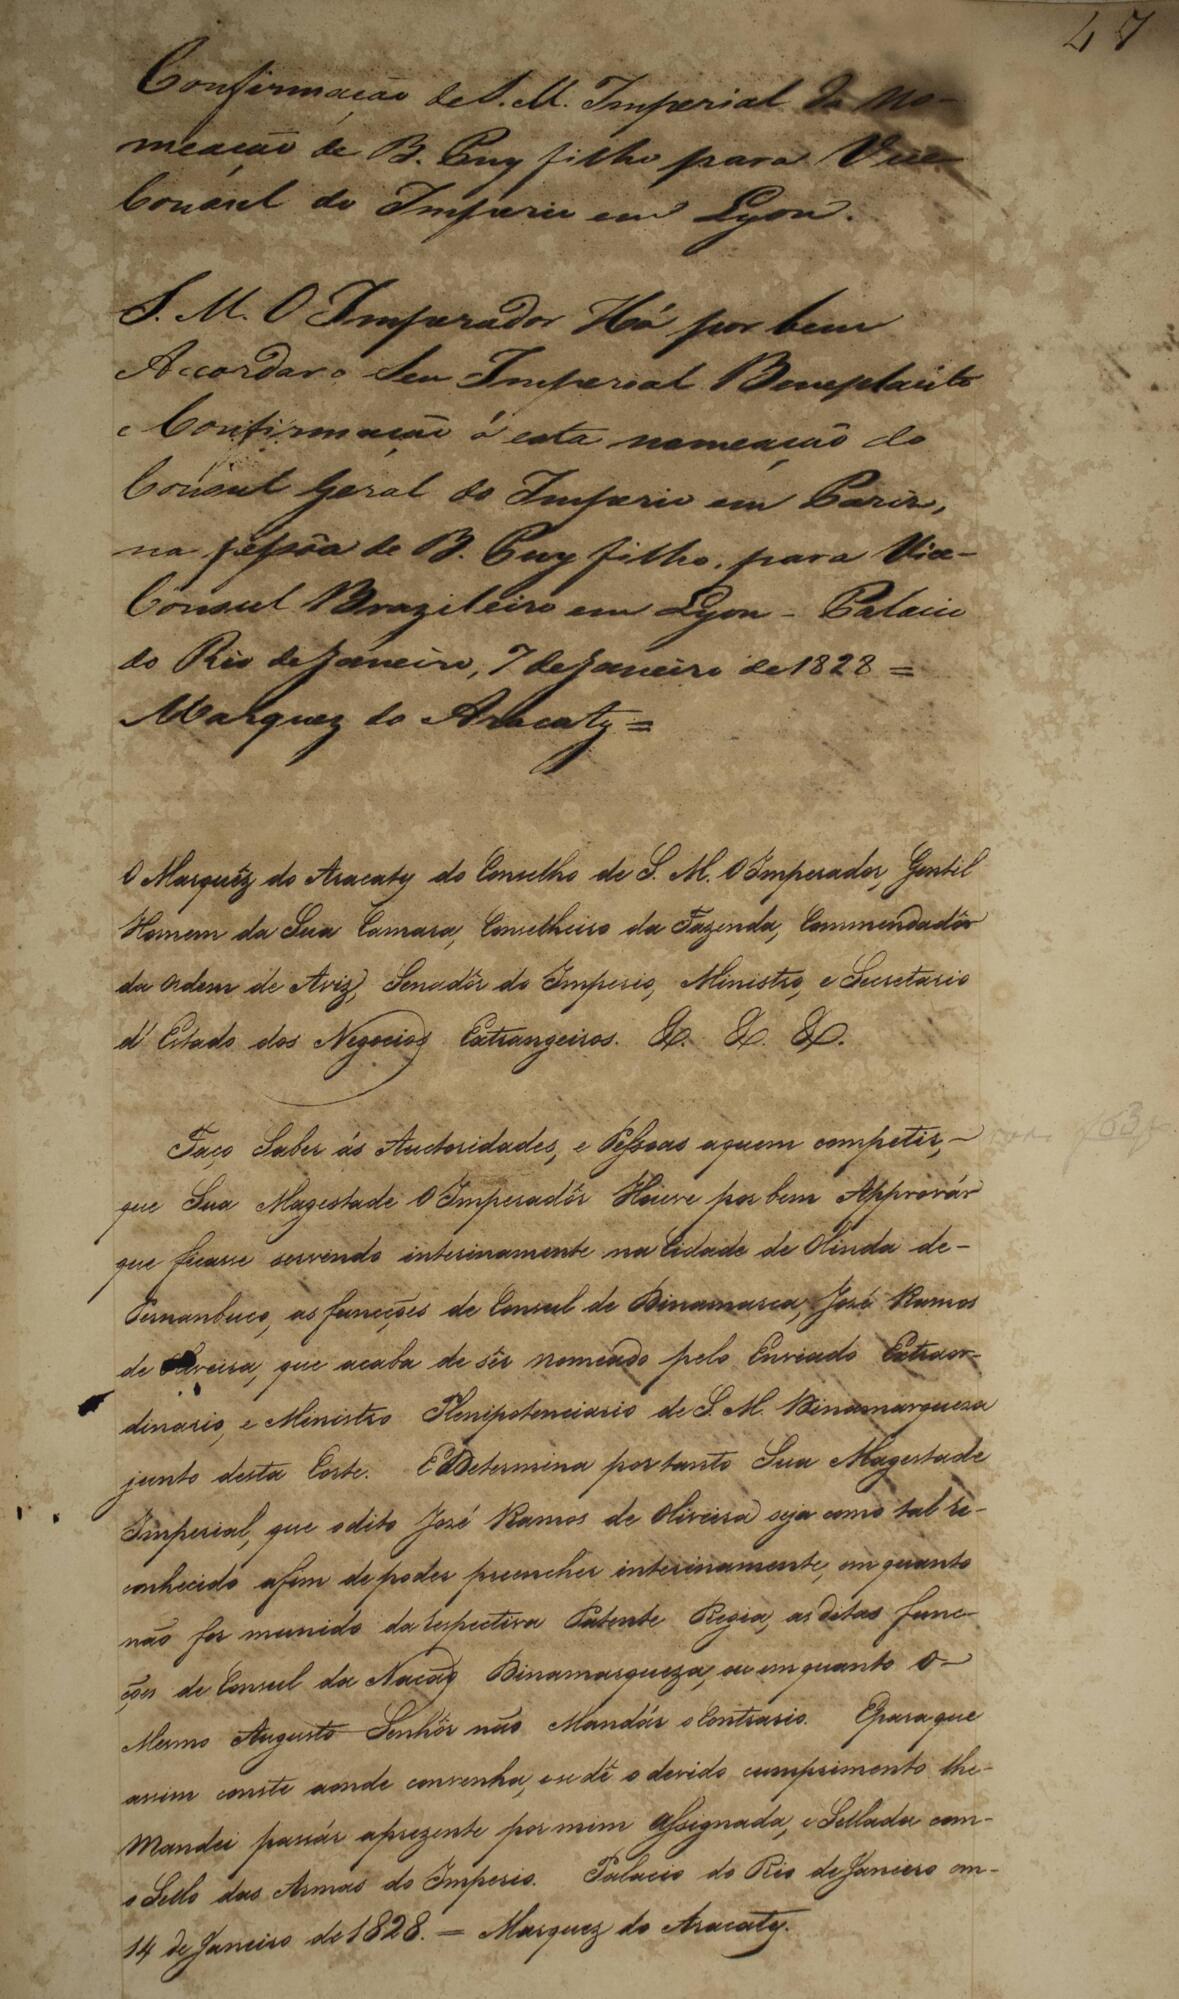 47
Confirmação de S. M. Imperial da No-
meação de B. Puy filho para Vice
Consul do Imperio em Lyon.
S. M. O Imperador Há por bem
Accordar o Seu Imperial Beneplacito
e Confirmação á esta nomeação do
Consul Geral do Imperio em Pariz,
na pessôa de B. Puy filho, para Vice-
Consul Brazileiro em Lyon - Palacio
do Rio de Janeiro, 7 de Janeiro de 1828 =
Marquez do Aracaty =
O Marquêz do Aracaty do Conselho de S. M. O Imperador, Gentil
Homem da Sua Camara, Conselheiro da Fazenda, Commendadôr
da Ordem de Aviz, Senadôr do Imperio, Ministro, e Secretario
d'Estado dos Negocios Extrangeiros. &. &. &.
Faço Saber ás Auctoridades, e Pessoas aquem competir,
que Sua Magestade O Imperadôr Houve por bem Approvár
que ficasse servindo interinamente na Cidade de Olinda de-
Pernanbuco, as funcções de Consul de Dinamarca, José Ramos
de Oliveira, que acaba de sêr nomeado pelo Enviado Extraor-
dinario, e Ministro Plenipotenciario de S. M. Dinamarqueza
junto desta Corte. E Determina portanto Sua Magestade
Imperial, que odito José Ramos de Oliveira seja como tal re-
conhecido afim de poder preencher interinamente, em quanto
não for munido da respectiva Patente Regia, as ditas func-
ções de Consul da Nação Dinamarqueza, ou emquanto O
Mesmo Augusto Senhôr não Mandár o Contrario. Eparaque
assim conste aonde convenha, ese dê o devido cumprimento lhe-
Mandei passár aprezente por mim assignada, e Sellada com-
o Sello das Armas do Imperio. Palacio do Rio de Janiero em-
14 de Janeiro de 1828. = Marquez do Aracaty.